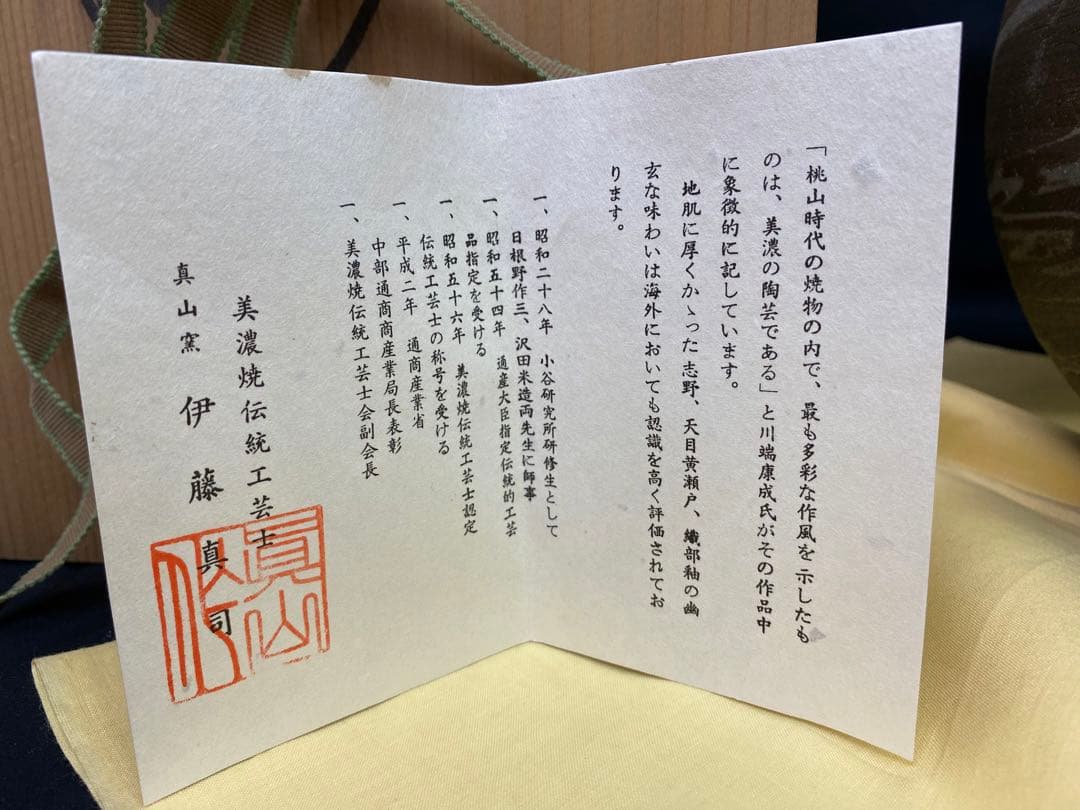 「桃山時代の焼物の内で、最も多彩な作風を示したも
のは、美濃の陶芸である」と川端康成氏がその作品中
に象徴的に記しています。
地肌に厚くかゝった志野、天目黄瀬戸、織部釉の幽
玄な味わいは海外においても認識を高く評価されてお
ります。
一、昭和二十八年 小谷研究所研修生として
日根野作三、沢田米造両先生に師事
一、昭和五十四年 通産大臣指定伝統的工芸
品指定を受ける
一、昭和五十六年 美濃焼伝統工芸士認定
伝統工芸士の称号を受ける
一、平成二年 通商産業省
中部通商商産業局長表彰
一、美濃焼伝統工芸士会副会長
美濃焼伝統工芸士
真山窯 伊藤真司
眞山